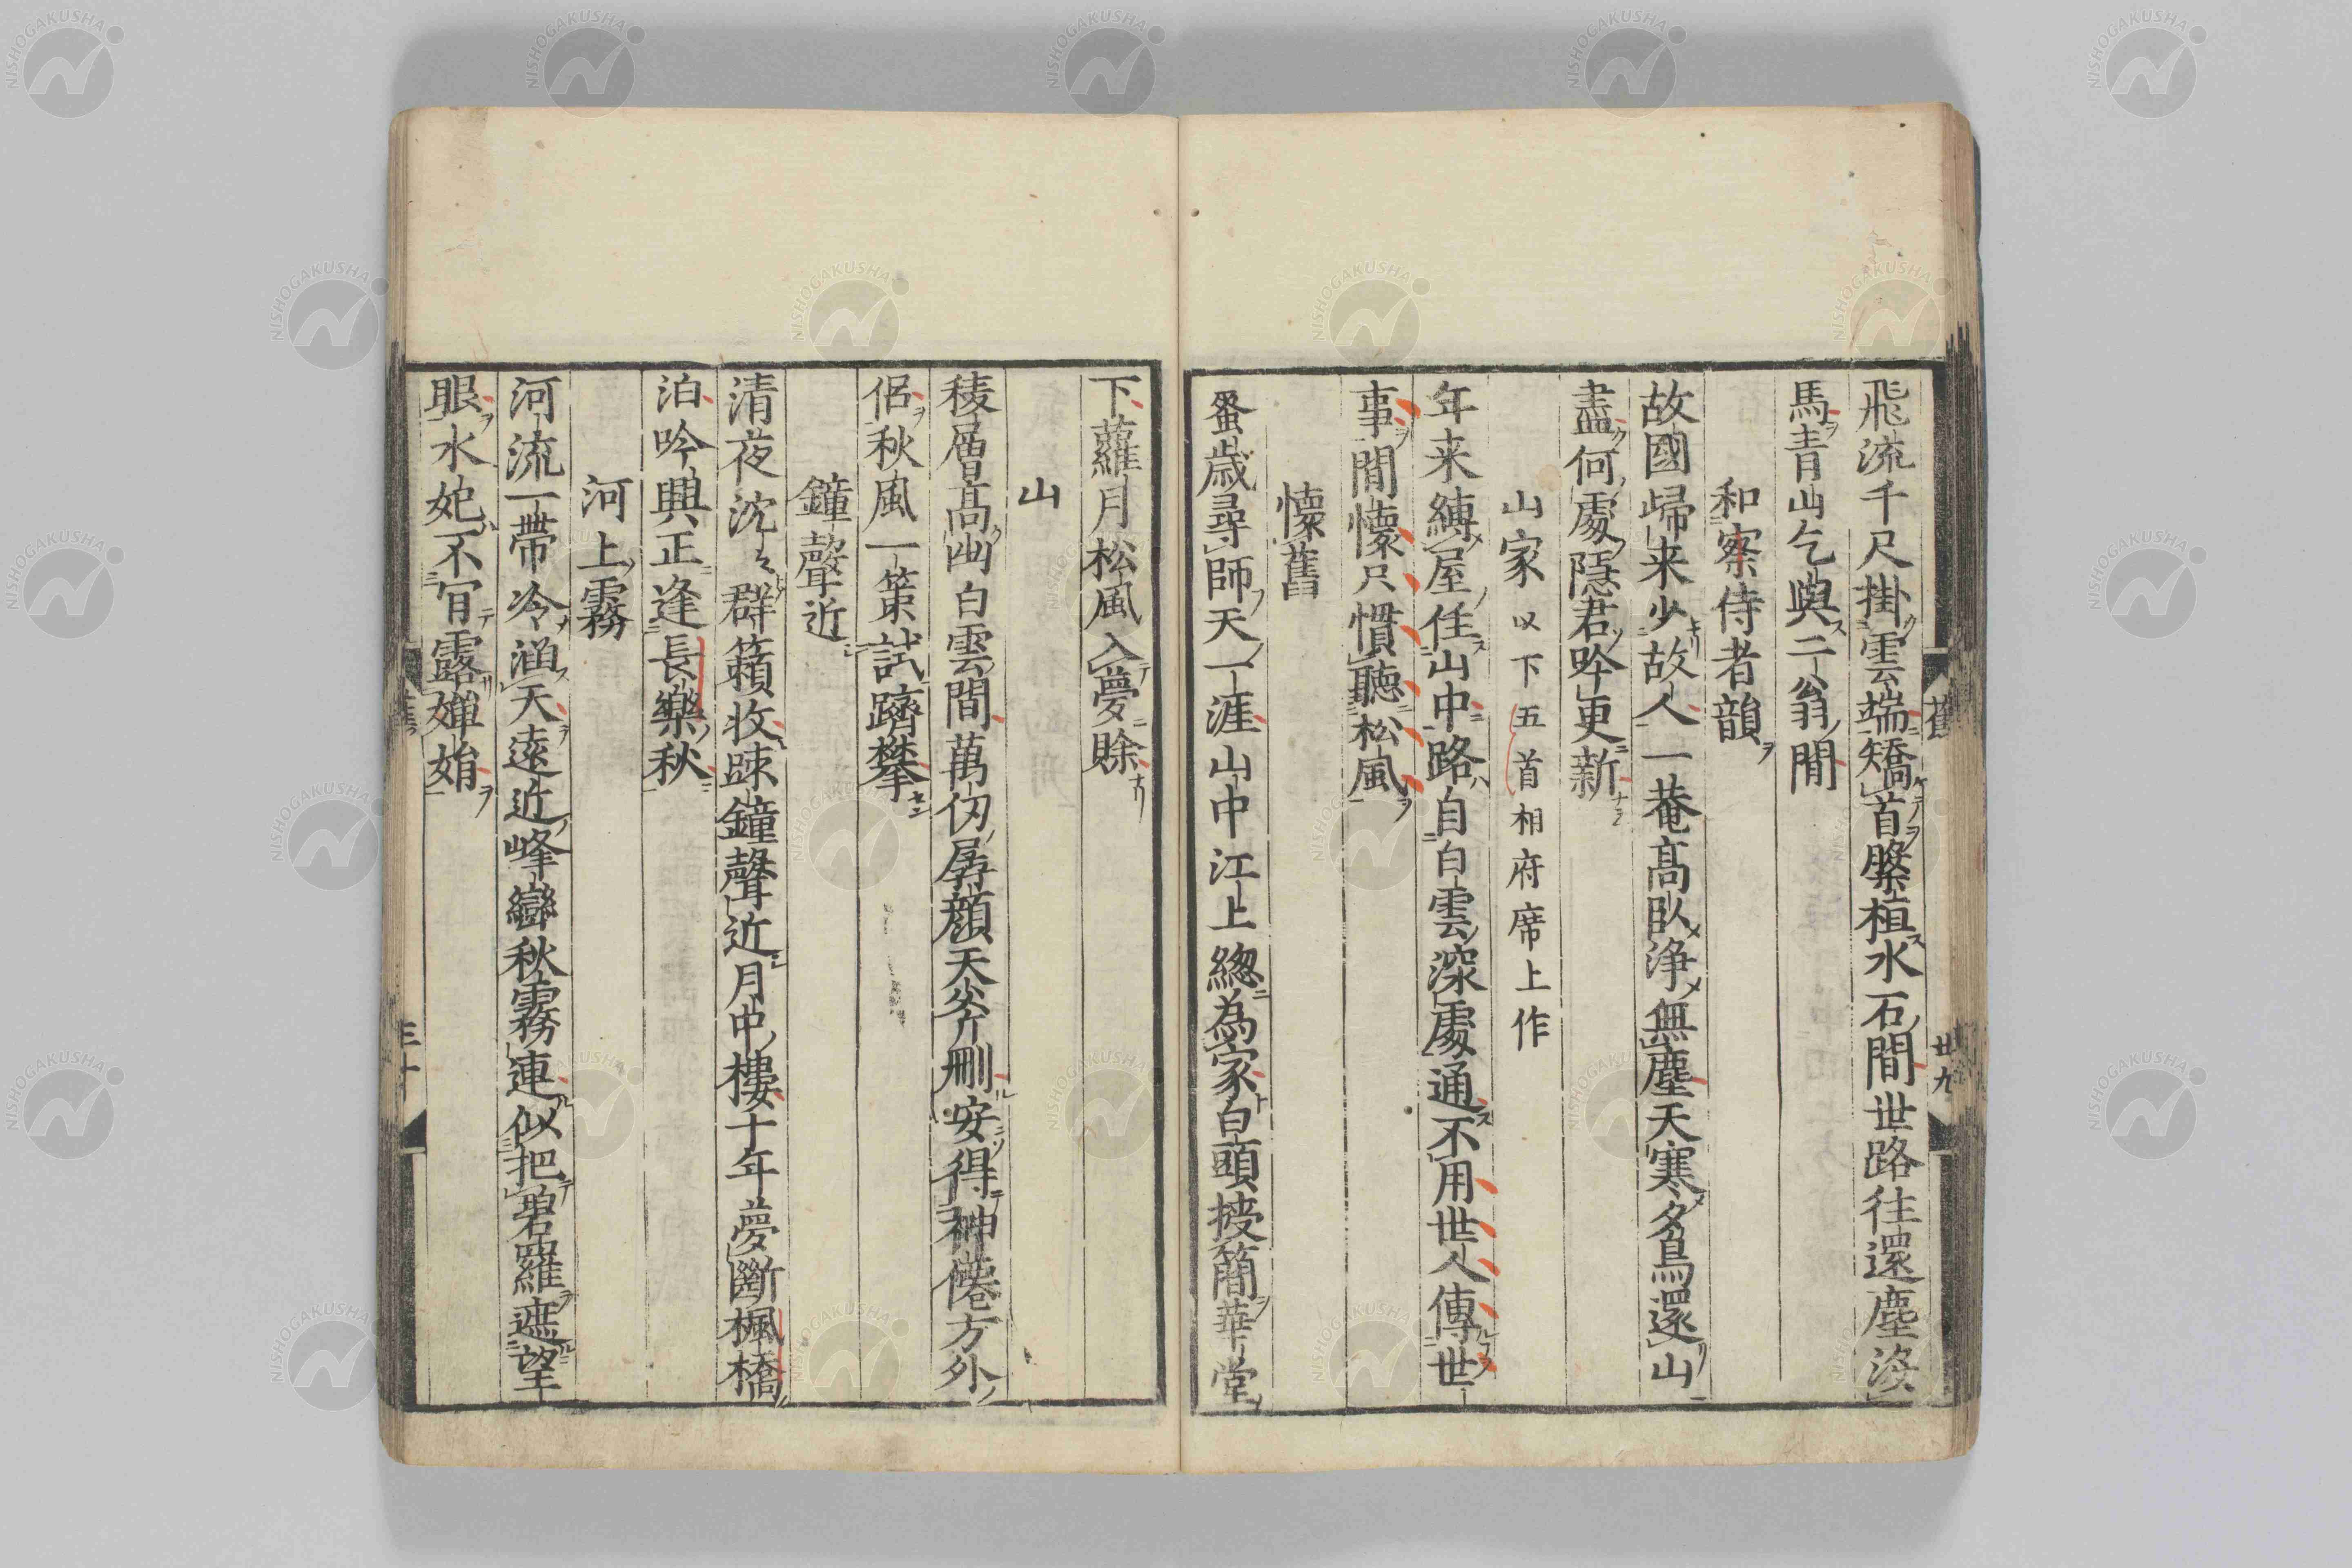 飛流千尺掛雲端矯首槃植水石間世路往還塵没
馬青山乞與二翁閒
和察侍者韻
故國歸来少故人一菴高臥浄無塵天寒夕鳥還山
盡何處隱君吟更新
山家以下五首相府席上作
年来縛屋住山中路自白雲深處通不用世人傳世
事閒懷只慣聽松風
懷舊
蚤歳尋師天一涯山中江上總為家白頭披簡華堂
下蘿月松風入夢賒
山
稜層高幽白雲間萬仞孱顔天劣刪安得神僊方外
侶秋風一策試躋攀
鐘聲近
清夜沈々群籟收疎鐘聲近月中樓十年夢斷楓橋
泊吟興正逢長樂秋
河上霧
河流一帶冷涵天遠近峰巒秋霧連似把碧羅遮望
眼水妃不肯露嬋娟
廿九
三十
NISHOGAKUSHA